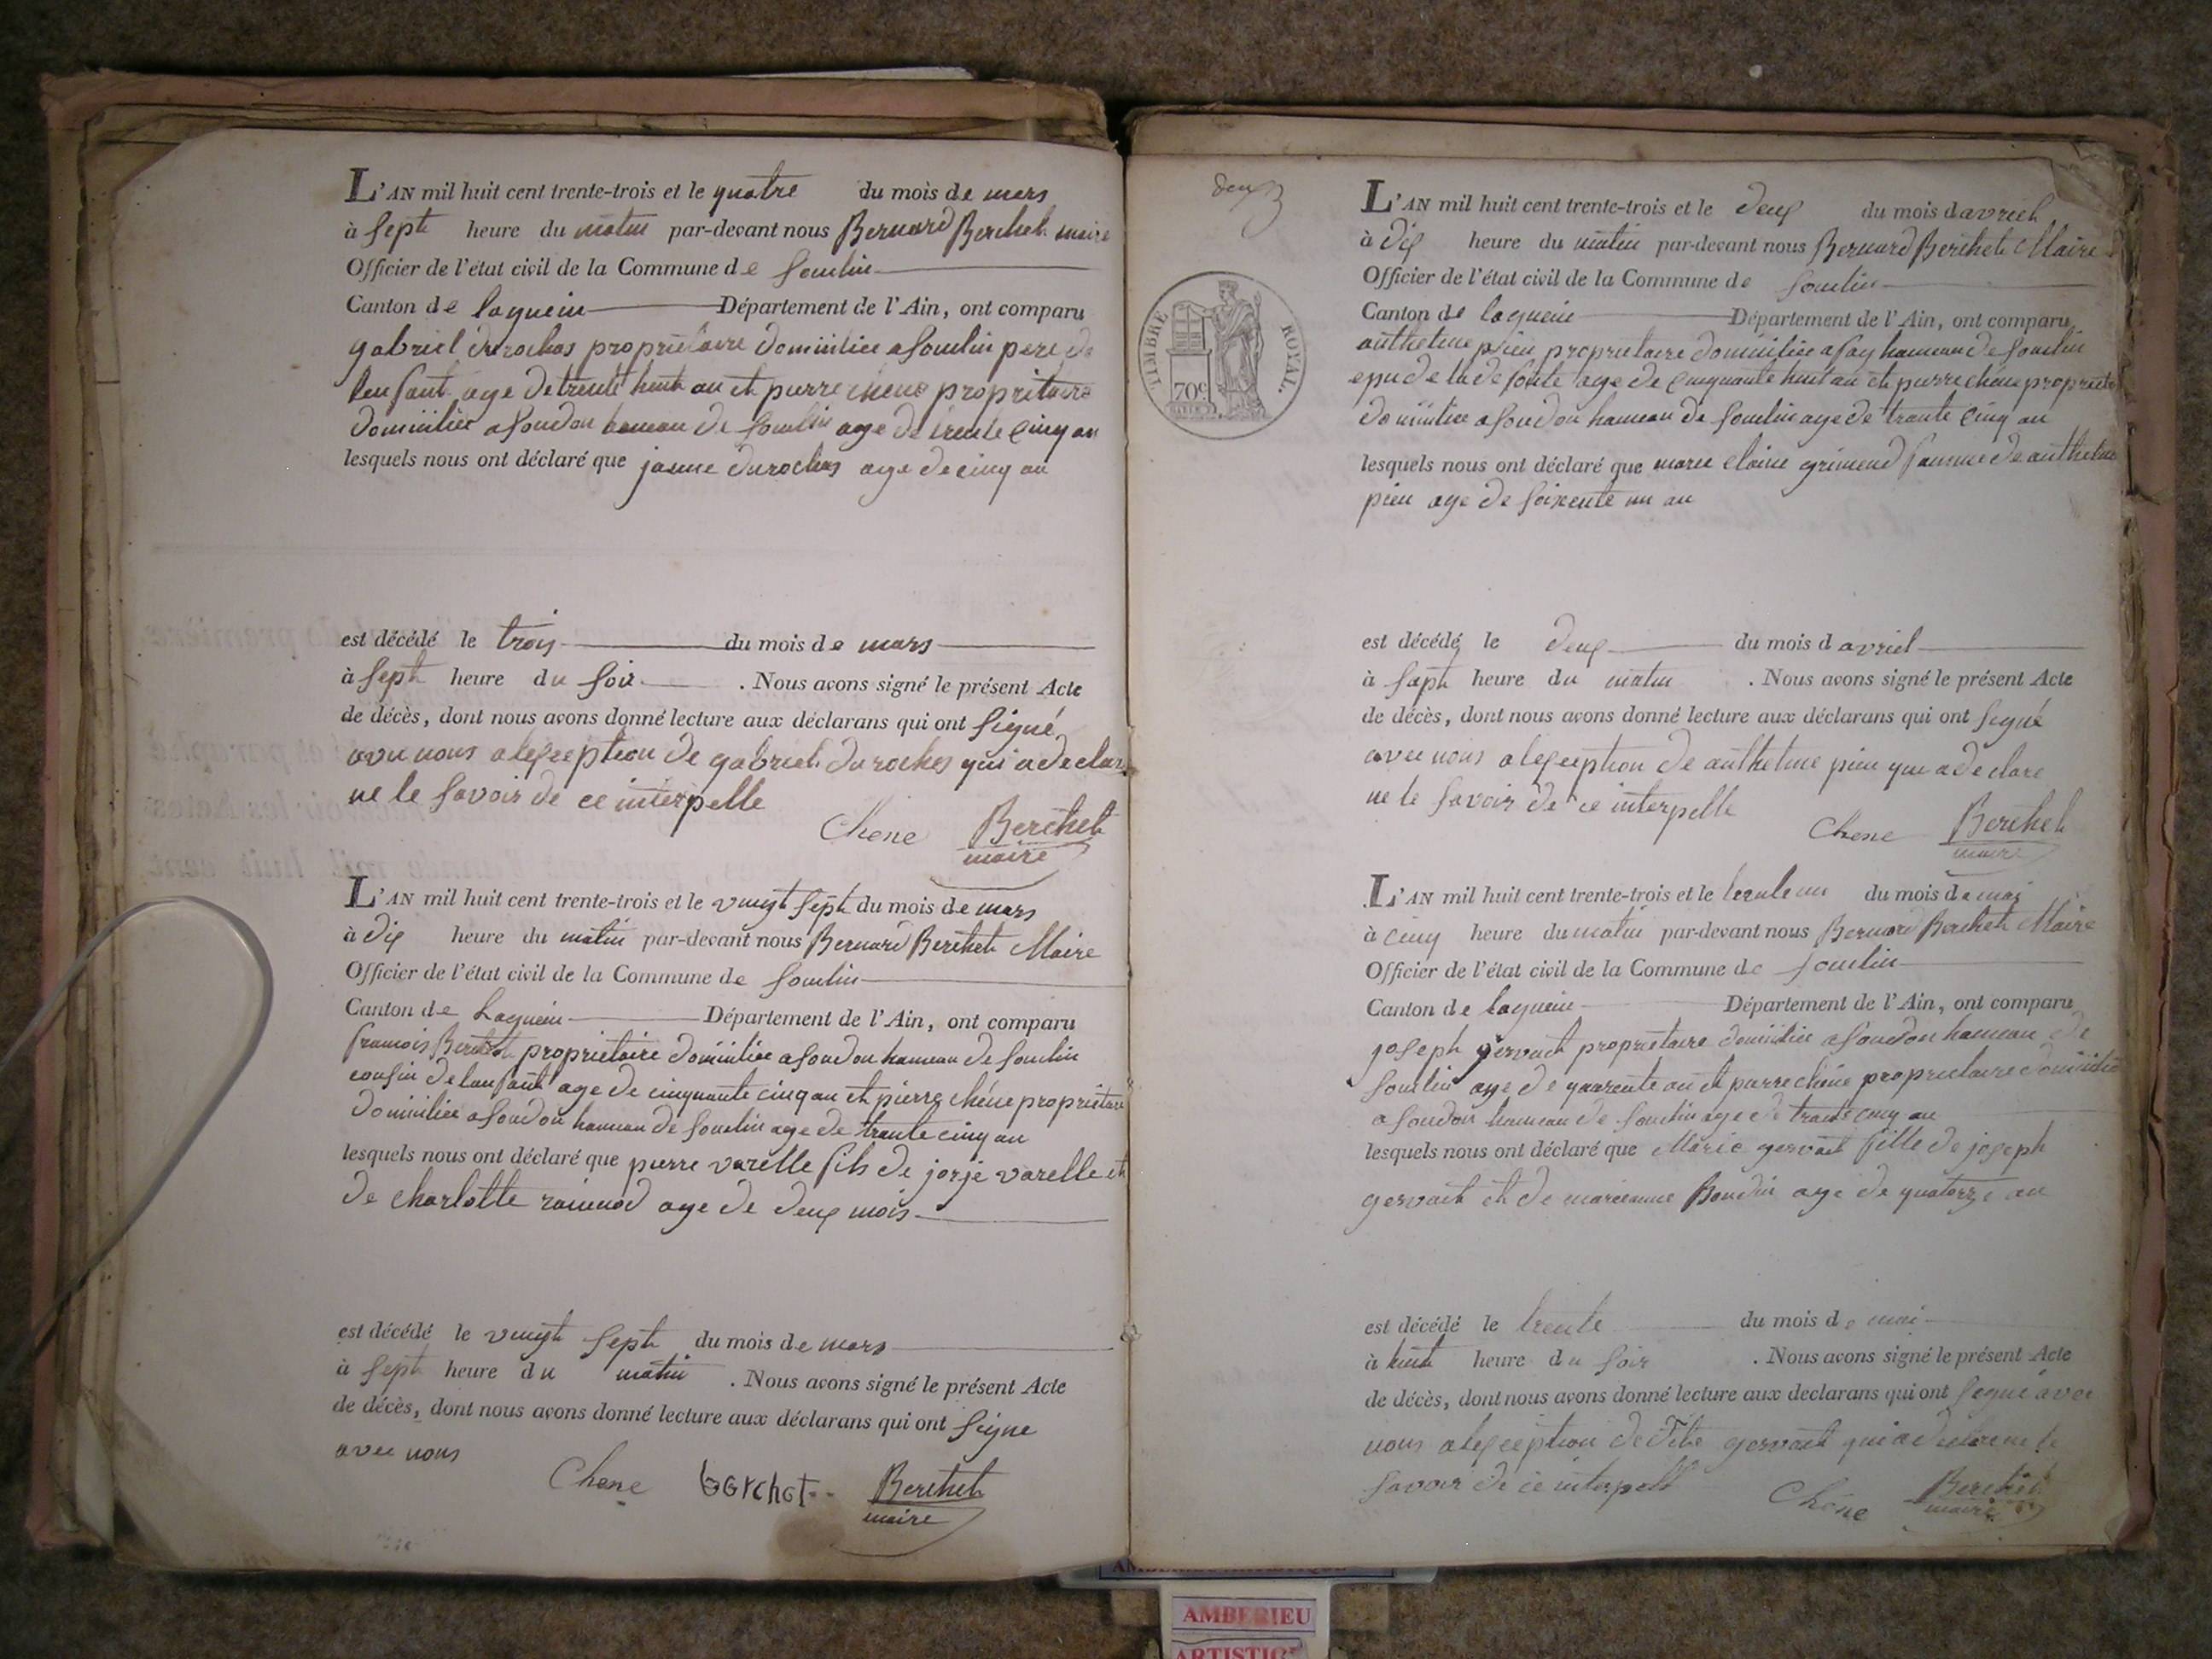 L'AN mil huit cent trente-trois et le quatre du mois de mars
à sept heure du matin par-devant nous Bernard Berthet maire
Officier de l'état civil de la Commune de souclin
Canton de lagnieu Département de l'Ain, ont comparu
gabriel durochas proprietaire domicilier a souclin pere de
lenfant age de trente huit an et pierre chene propritaire
domicilier a soudon hameau de souclin age de trente cinq an
lesquels nous ont déclaré que jeanne durochas age de cinq an
est décédé le trois du mois de mars
à sept heure du soir . Nous avons signé le présent Acte
de décès, dont nous avons donné lecture aux déclarans qui ont signé
avec nous a lexception de gabriel durochas qui a declare
ne le savoir de ce interpelle
Chene Berthet
maire
L'AN mil huit cent trente-trois et le vingt sept du mois de mars
à dix heure du matin par-devant nous Bernard Berthet Maire
Officier de l'état civil de la Commune de souclin
Canton de Lagnieu Département de l'Ain, ont comparu
francois proprietaire domicilier a soudon hameau de souclin
cousin de lenfant age de cinquante cinq an et pierre chéne propriétaire
domicilier a soudon hameau de souclin age de trante cinq an
lesquels nous ont déclaré que pierre varelle fils de jorje varelle et
de charlotte age de deux mois
est décédé le vingt sept du mois de mars
à sept heure du matin . Nous avons signé le présent Acte
de décès, dont nous avons donné lecture aux déclarans qui ont signe
avec nous
Chene berchet Berthet
maire
deux
TIMBRE ROYAL.
70c
L'AN mil huit cent trente-trois et le deux du mois d avriel
à dix heure du matin par-devant nous Bernard Berthet Maire
Officier de l'état civil de la Commune de souclin
Canton de lagnieu Département de l'Ain, ont comparu
anthelme proprietaire domicilier a fay hameau de souclin
de la defonte age de cinquante huit an et pierre chéne propriete
domicilier a soudon hameau de souclin age de trante cinq an
lesquels nous ont déclaré que marie claine femme de anthelme
age de soixente un an
est décédé le deux du mois d avriel
à sept heure du matin . Nous avons signé le présent Acte
de décès, dont nous avons donné lecture aux déclarans qui ont signé
avec nous a lexception de anthelme qui a declare
ne le savoir de ce interpelle
Chene Berthet
maire
L'AN mil huit cent trente-trois et le trente un du mois de mai
à cinq heure du matin par-devant nous Bernard Berthet Maire
Officier de l'état civil de la Commune de souclin
Canton de lagnieu Département de l'Ain, ont comparu
joseph gervait proprietaire domicilier a soudon hameau de
souclin age de quarente an et pierre chéne proprietaire domicilie
a soudon hameau de souclin age de cinq an
lesquels nous ont déclaré que Marie gervait fille de joseph
gervait et de marieanne Boudin age de quatorze an
est décédé le trente du mois de mai
à huit heure du soir . Nous avons signé le présent Acte
de décès, dont nous avons donné lecture aux declarans qui ont signé avec
nous a lexception de gervait qui a declare ne le
savoir de ce interpelle
Chene Berthet
maire
AMBERIEU